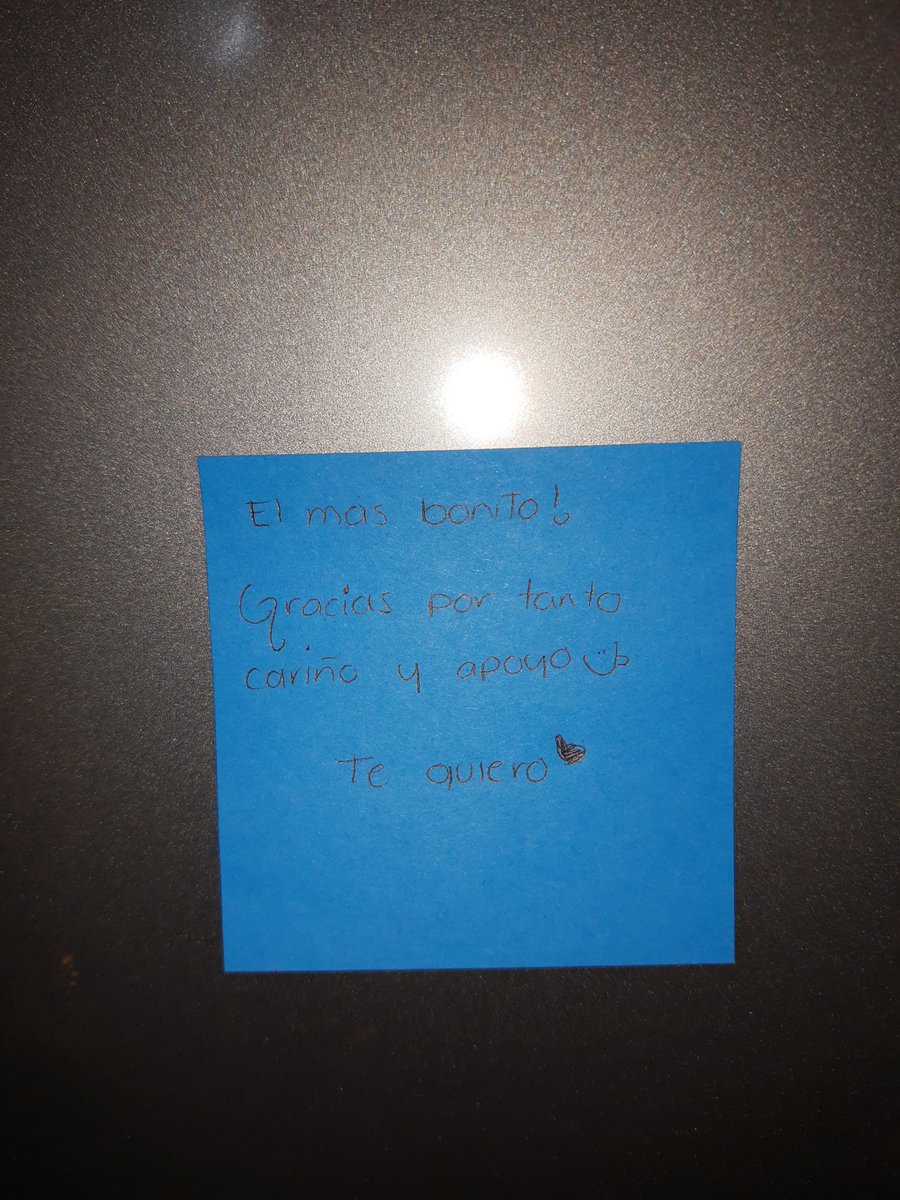 El más bonito!
Gracias por tanto
cariño y apoyo
Te quiero